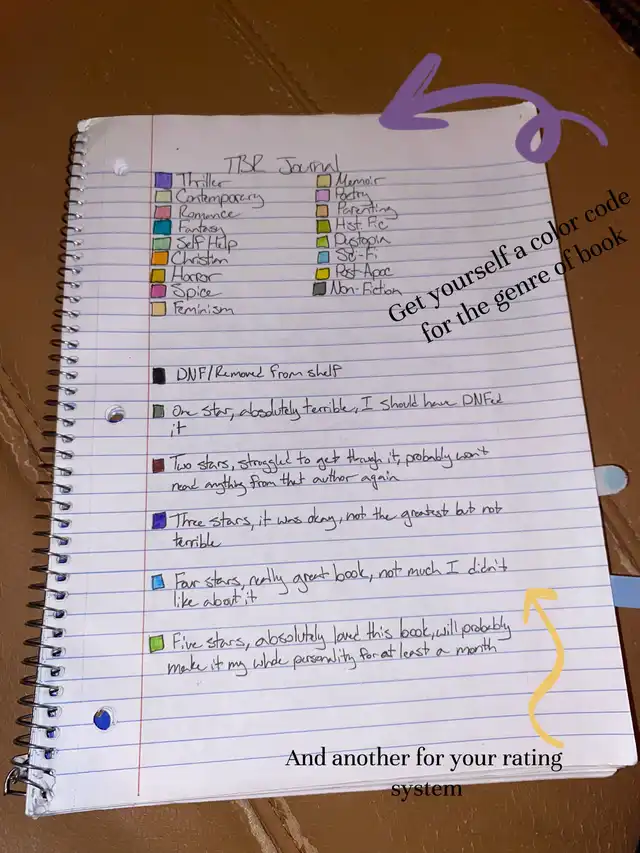 TBR Journal
Thriller
Contemporary
Romance
Fantasy
Self Help
Christian
Horror
Spice
Feminism
Memoir
Poetry
Parenting
Hist. Fic
Dystopia
Sci-Fi
Post-Apoc
Non-Fiction
Get yourself a color code
for the genre of book
DNF/Removed from shelf
One star, absolutely terrible, I should have DNFed
it
Two stars, struggled to get through it, probably won't
read anything from that author again
Three stars, it was okay, not the greatest but not
terrible
Four stars, really great book, not much I didn't
like about it
Five stars, absolutely loved this book, will probably
make it my whole personality for at least a month
And another for your rating
system